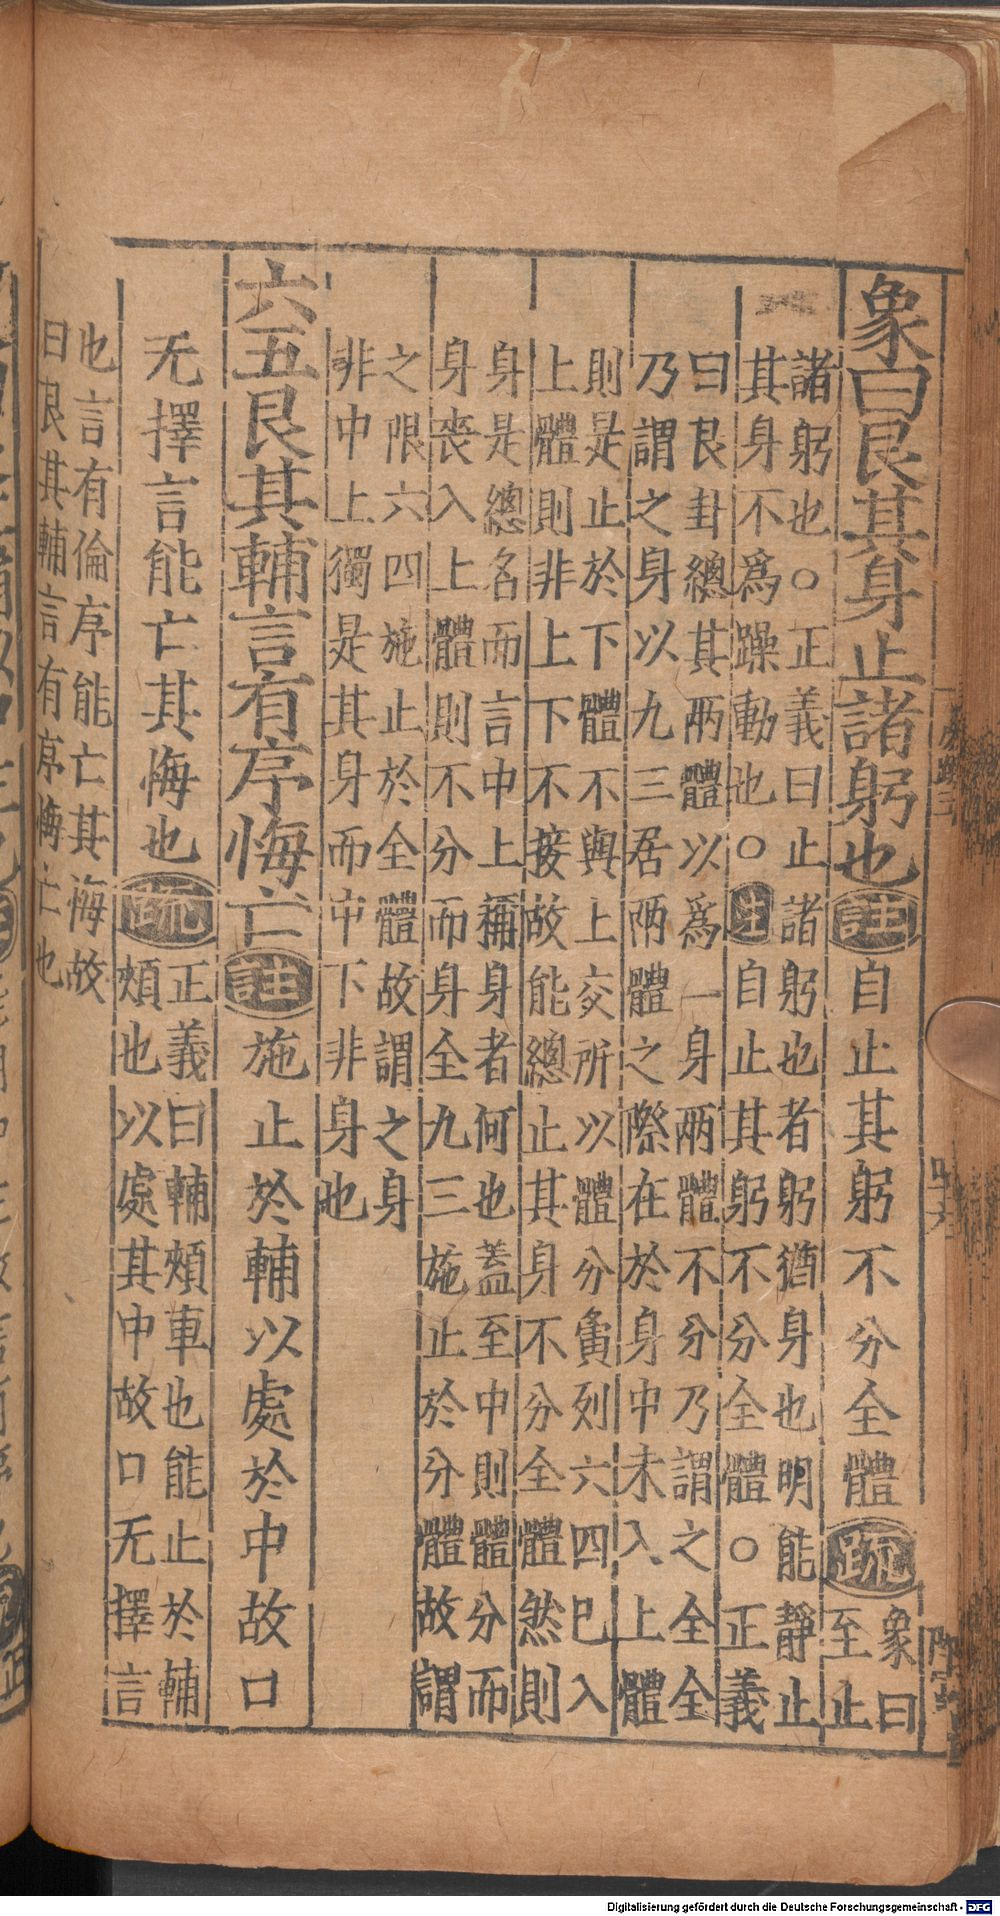 象曰艮其身止諸躬也註自止其躬不分全體疏象曰
至止
諸躬也○正義曰止諸躬也者躬猶身也明能靜止
其身不爲躁動也○註自止其躬不分全體○正義
曰艮卦總其兩體以爲一身兩體不分乃謂之全全
乃謂之身以九三居兩體之際在於身中未入上體
則是止於下體不與上交所以體分夤列六四已入
上體則非上下不接故能總止其身不分全體然則
身是總名而言中上稱身者何也蓋至中則體分而
身喪入上體則不分而身全九三施止於分體故謂
之限六四施止於全體故謂之身
非中上獨是其身而中下非身也
六五艮其輔言有序悔亡註施止於輔以處於中故口
无擇言能亡其悔也疏正義曰輔頰車也能止於輔
頰也以處其中故口无擇言
也言有倫序能亡其悔故
曰艮其輔言有序悔亡也
Digitalisierung gefördert durch die Deutsche Forschungsgemeinschaft - DFG